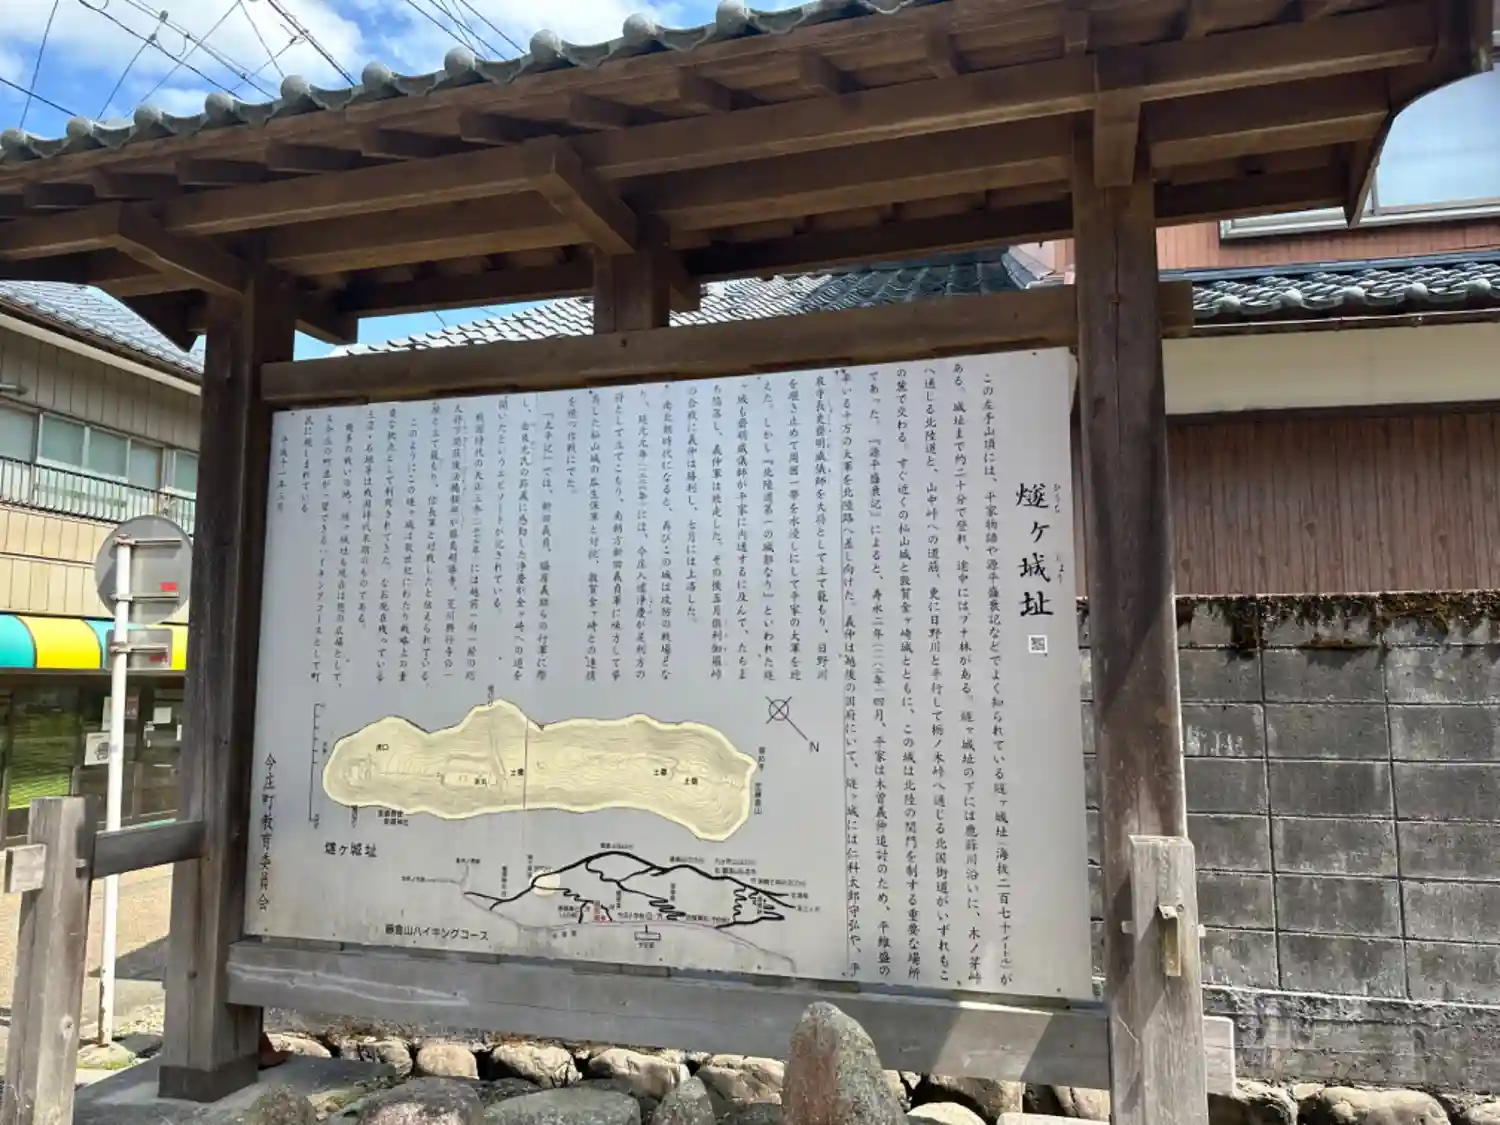 燧ヶ城址
ひうち
じょう
この左手山頂には、平家物語や源平盛衰記などでよく知られている燧ヶ城址(海抜二百七十メートル)が
ある。城址まで約二十分で登れ、途中にはブナ林がある。燧ヶ城址の下には鹿蒜川沿いに、木ノ芽峠
へ通じる北陸道と、山中峠への道筋、更に日野川と平行して栃ノ木峠へ通じる北国街道がいずれもこ
の麓で交わる。すぐ近くの杣山城と敦賀金ヶ崎城とともに、この城は北陸の関門を制する重要な場所
であった。『源平盛衰記』によると、寿永二年(一一八三年)四月、平家は木曽義仲追討のため、平維盛の
率いる十万の大軍を北陸路へ差し向けた。義仲は越後の国府にいて、燧ヶ城には仁科太郎守弘や、平
泉寺長吏齋明威儀師を大将として立て籠もり、日野川
を堰き止めて周囲一帯を水浸しにして平家の大軍を迎
えた。しかし『北陸道第一の城郭なり』といわれた燧
ヶ城も齋明威儀師が平家に内通するに及んで、たちま
ち陥落し、義仲軍は敗走した。その後五月倶利伽羅峠
の合戦に義仲は勝利し、七月には上洛した。
南北朝時代になると、再びこの城は攻防の戦場とな
り、延元元年(一三三六年)には、今庄入道浄慶が足利方の
将として立てこもり、南朝方新田義貞軍に味方して挙
兵した杣山城の瓜生保軍と対抗、敦賀金ヶ崎との連携
を巡って激戦した。
『太平記』では、新田義貞、脇屋義助らの行軍に際
し、由良光氏の節義に感動した浄慶が金ヶ崎への道を
開いたというエピソードが記されている。
戦国時代の天正三年(一五七五年)には越前一向一揆の総
大将下間筑後法橋頼照が藤島超勝寺、荒川興行寺の一
揆と立て籠もり、信長軍と対戦したと伝えられている。
このようにこの燧ヶ城は数世紀にわたり戦略上の重
要な拠点として利用されてきた。なお現在残っている
土塁・石垣等は戦国時代末期のものである。
幾多の戦いの地、燧ヶ城址も現在は憩の広場として、
又今庄の町並が一望できるハイキングコースとして町
民に親しまれている。
平成十一年三月
今庄町教育委員会
N
虎口
本丸
土塁
土塁
土塁
燧ヶ城址
藤倉山ハイキングコース